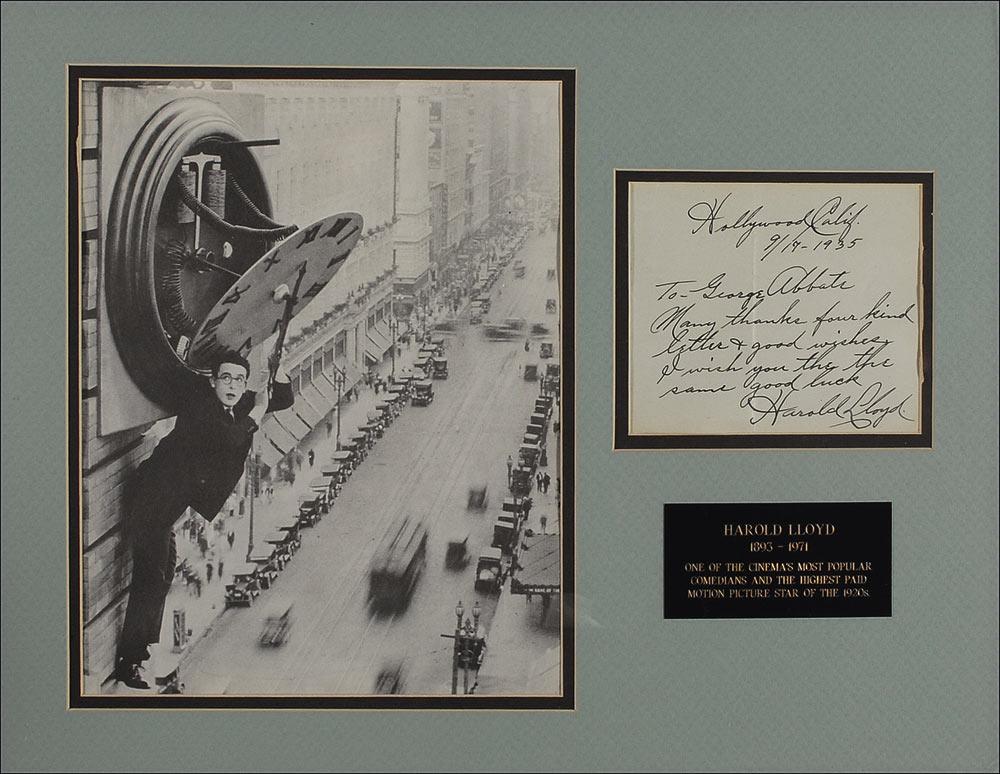 Hollywood, Calif.
9/17-1935
To- George Abbate
Many thanks four kind
letter & good wishes,
I wish you the the
same good luck
Harold Lloyd.
HAROLD LLOYD
1893 - 1971
ONE OF THE CINEMA'S MOST POPULAR
COMEDIANS AND THE HIGHEST PAID
MOTION PICTURE STAR OF THE 1920s.